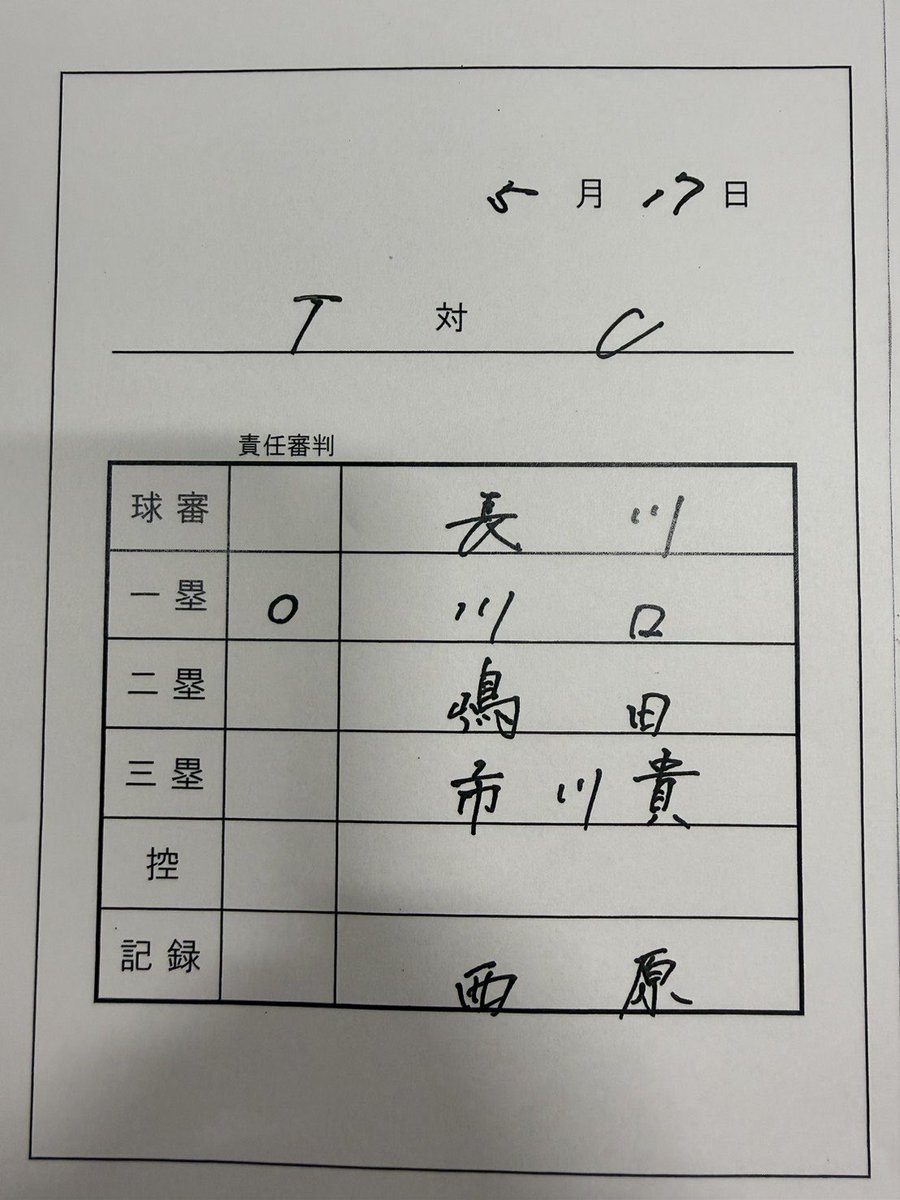 5月17日
T 対 C
責任審判
球審 長川
一塁 ○ 川口
二塁 嶋田
三塁 市川貴
控
記録 西原